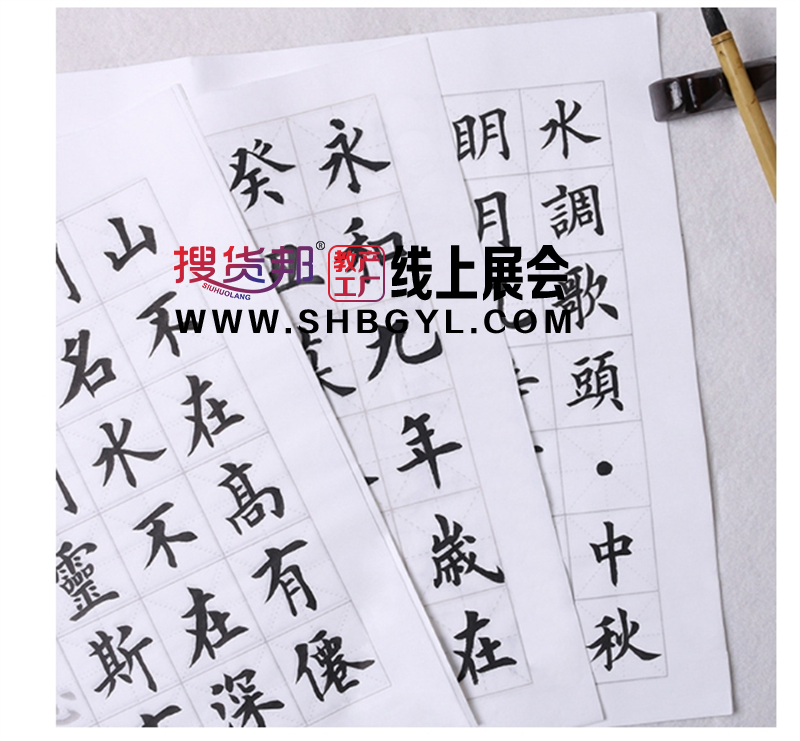 水調歌頭・中秋
明月
永和九年歲在
癸丑
山不在高有僊
名水不在深
靈斯
搜货邦® 教产工厂 线上展会
SIUHUOLANG
WWW.SHBGYL.COM